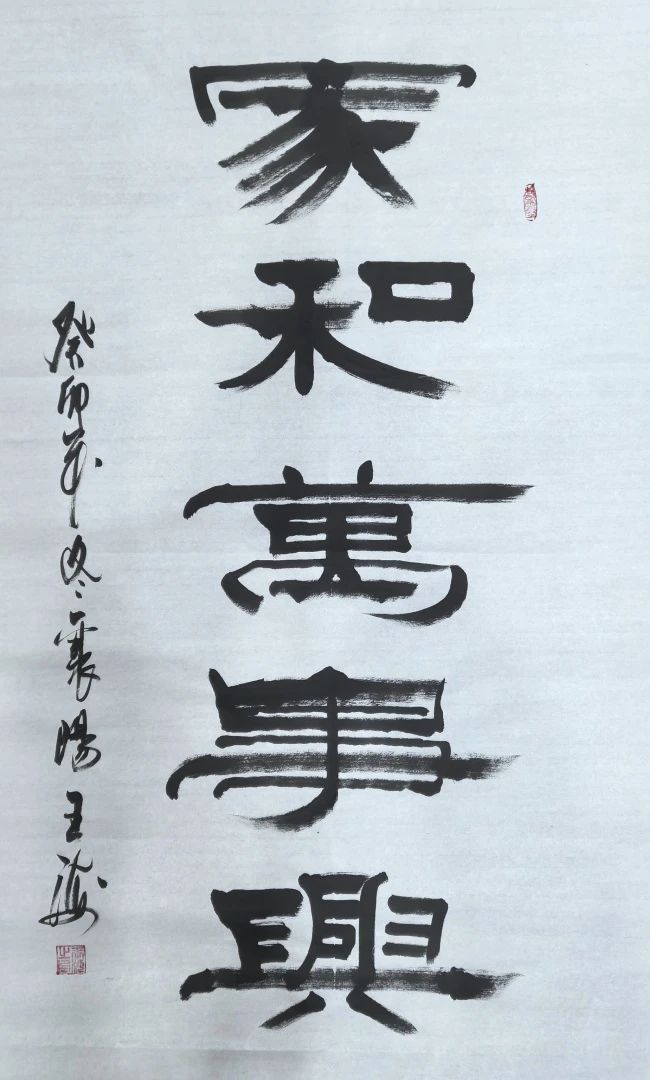 家和萬事興
癸卯年冬襄陽王海